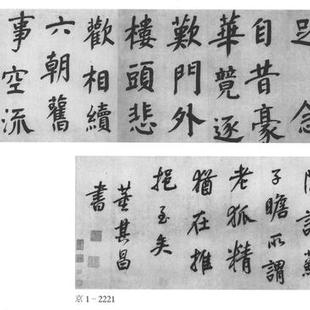 足念
自昔豪
華競逐
歎門外
樓頭悲
歡相續
六朝舊
事空流
蘇
子瞻所謂
老狐精
猶在推
挹至矣
董其昌
書
京 1－2221